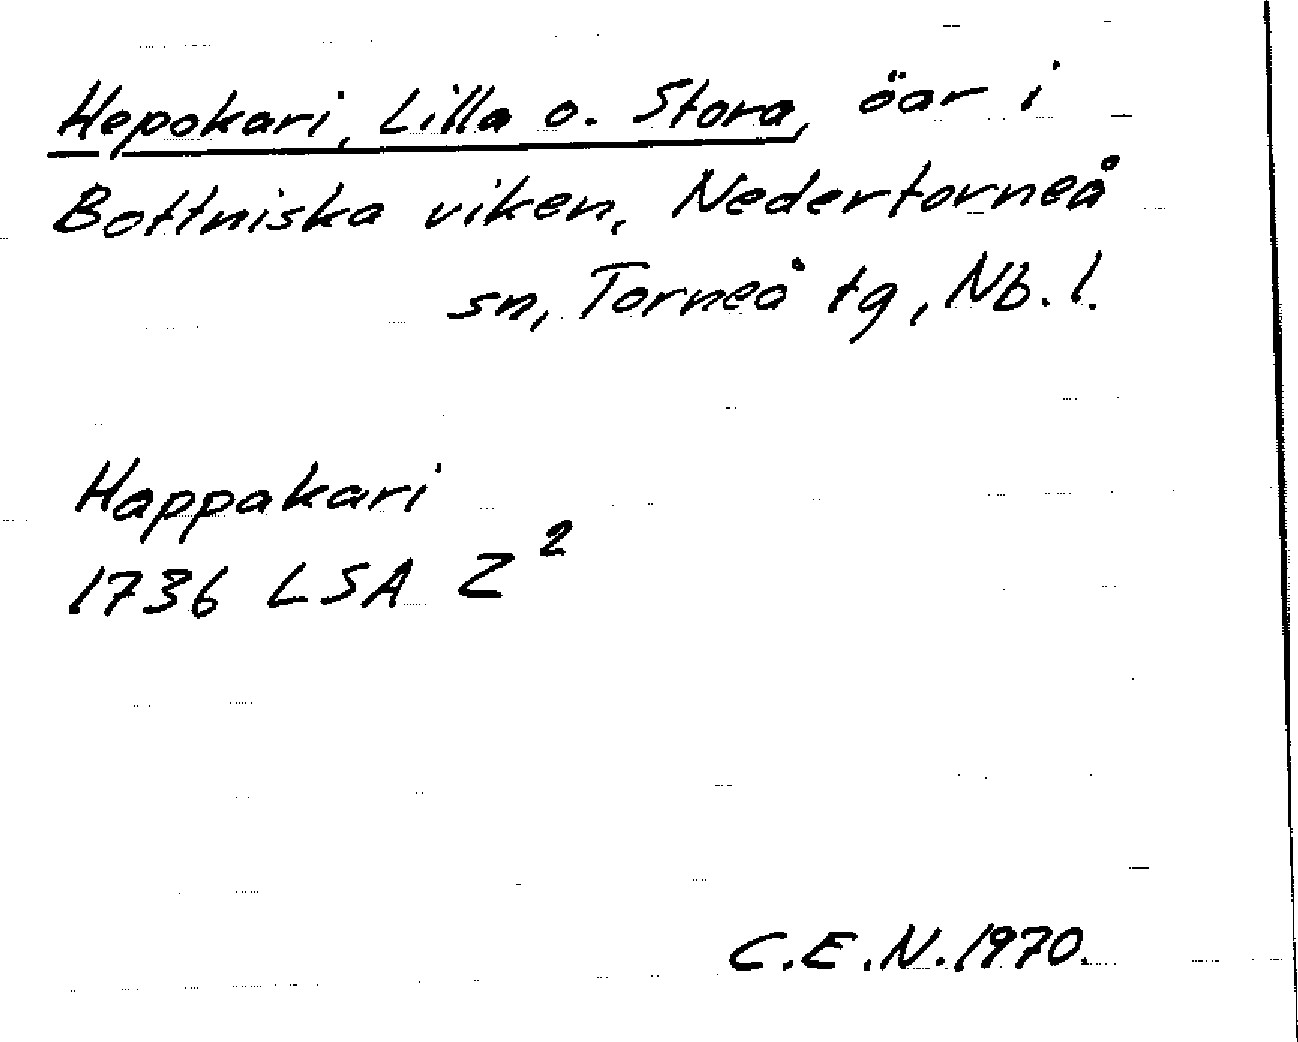 Hepokari, Lilla o. Stora, öar i
Bottniska viken, Nedertorneå
sn, Torneå tg, Nb. l.
Happakari
1736 LSA Z²
C.E.N. 1970.